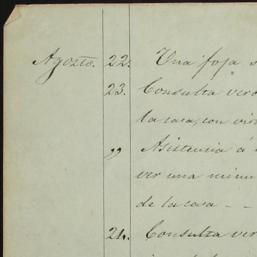 Agosto. 22. Una foja
23. Consulta ver
la casa, con vis
" Asistencia á
ver una minu
de la casa - -
24. Consulta ver